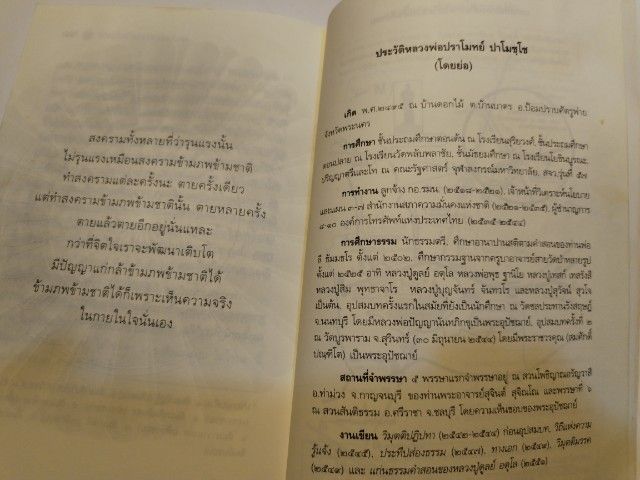 สงครามทั้งหลายที่ว่ารุนแรงนั้น
ไม่รุนแรงเหมือนสงครามข้ามภพข้ามชาติ
ทำสงครามแต่ละครั้งนะ ตายครั้งเดียว
แต่ทำสงครามข้ามภพข้ามชาตินั้น ตายหลายครั้ง
ตายแล้วตายอีกอยู่นั่นแหละ
กว่าที่จิตใจเราจะพัฒนาเติบโต
มีปัญญาแก่กล้าข้ามภพข้ามชาติได้
ข้ามภพข้ามชาติได้ก็เพราะเห็นความจริง
ในกายในใจนั่นเอง
ประวัติหลวงพ่อปราโมทย์ ปาโมชฺโช
(โดยย่อ)
เกิด พ.ศ.๒๔๙๕ ณ บ้านดอกไม้ ต.บ้านบาตร อ.ป้อมปราบศัตรูพ่าย
จังหวัดพระนคร
การศึกษา ชั้นประถมศึกษาตอนต้น ณ โรงเรียนสุริยวงศ์, ชั้นประถมศึกษา
ตอนปลาย ณ โรงเรียนวัดพลับพลาชัย, ชั้นมัธยมศึกษา ณ โรงเรียนโยธินบูรณะ,
ปริญญาตรีและโท ณ คณะรัฐศาสตร์ จุฬาลงกรณ์มหาวิทยาลัย, สธว.รุ่นที่ ๕๗
การทำงาน ลูกจ้าง กอ.รมน. (๒๕๑๘-๒๕๒๑), เจ้าหน้าที่วิเคราะห์นโยบาย
และแผน ๓-๗ สำนักงานสภาความมั่นคงแห่งชาติ (๒๕๒๑-๒๕๓๕), ผู้ชำนาญการ
๘-๑๐ องค์การโทรศัพท์แห่งประเทศไทย (๒๕๓๕-๒๕๔๔)
การศึกษาธรรม นักธรรมตรี, ศึกษาอานาปานสติตามคำสอนของท่านพ่อ
ลี ธัมมธโร ตั้งแต่ ๒๕๐๒, ศึกษากรรมฐานจากครูบาอาจารย์สายวัดป่าหลายรูป
ตั้งแต่ ๒๕๒๕ อาทิ หลวงปู่ดูลย์ อตุโล หลวงพ่อพุธ ฐานิโย หลวงปู่เทสก์ เทสรังสี
หลวงปู่สิม พุทธาจาโร หลวงปู่บุญจันทร์ จันทวโร และหลวงปู่สุวัจน์ สุวโจ
เป็นต้น, อุปสมบทครั้งแรกในสมัยที่ยังเป็นนักศึกษา ณ วัดชลประทานรังสฤษฎ์
จ.นนทบุรี โดยมีหลวงพ่อปัญญานันทภิกขุเป็นพระอุปัชฌาย์, อุปสมบทครั้งที่ ๒
ณ วัดบูรพาราม จ.สุรินทร์ (๓๐ มิถุนายน ๒๕๔๔) โดยมีพระราชวรคุณ (สมศักดิ์
ปณฺฑิโต) เป็นพระอุปัชฌาย์
สถานที่จำพรรษา ๕ พรรษาแรกจำพรรษาอยู่ ณ สวนโพธิญาณอรัญวาสี
อ.ท่าม่วง จ.กาญจนบุรี ของท่านพระอาจารย์สุจินต์ สุจิณโณ และพรรษาที่ ๖
ณ สวนสันติธรรม อ.ศรีราชา จ.ชลบุรี โดยความเห็นชอบของพระอุปัชฌาย์
งานเขียน วิมุตติปฏิปทา (๒๕๔๒-๒๕๔๔) ก่อนอุปสมบท, วิถีแห่งความ
รู้แจ้ง (๒๕๔๕), ประทีปส่องธรรม (๒๕๔๗), ทางเอก (๒๕๔๙), วิมุตติมรรค
(๒๕๔๙) และ แก่นธรรมคำสอนของหลวงปู่ดูลย์ อตุโล (๒๕๕๑)